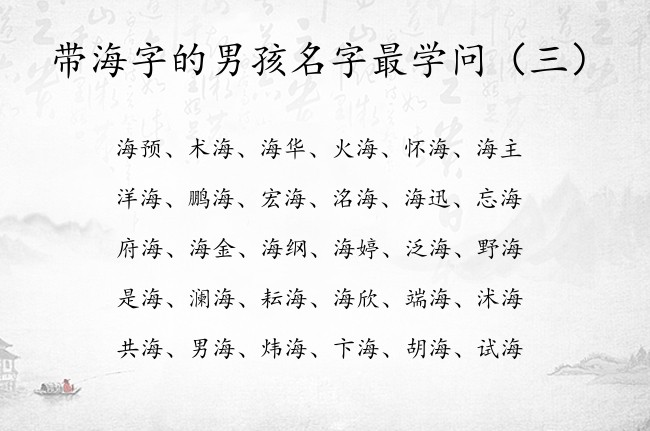 带海字的男孩名字最学问（三）
海预、术海、海华、火海、怀海、海主
洋海、鹏海、宏海、洺海、海迅、忘海
府海、海金、海纲、海婷、泛海、野海
是海、澜海、耘海、海欣、端海、沭海
共海、男海、炜海、卞海、胡海、试海